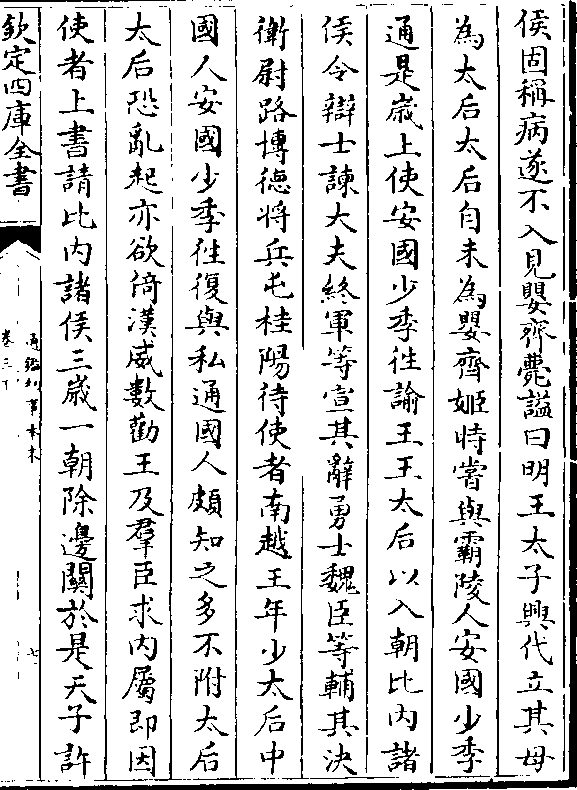 侯固稱病遂不入見嬰齊薨諡曰明王太子興代立其母
為太后太后自未為嬰齊姬時嘗與霸陵人安國少季
通是歲上使安國少季往諭王王太后以入朝比内諸
侯令辯士諫大夫終軍等宣其辭勇士魏臣等輔其決
衛尉路博德將兵屯桂陽待使者南越王年少太后中
國人安國少季往復與私通國人頗知之多不附太后
太后恐亂起亦欲倚漢威數勸王及羣臣求内屬即因
使者上書請比内諸侯三歲一朝除邊關於是天子許
欽定四庫全書
通鑑紀事本末
卷三下
七